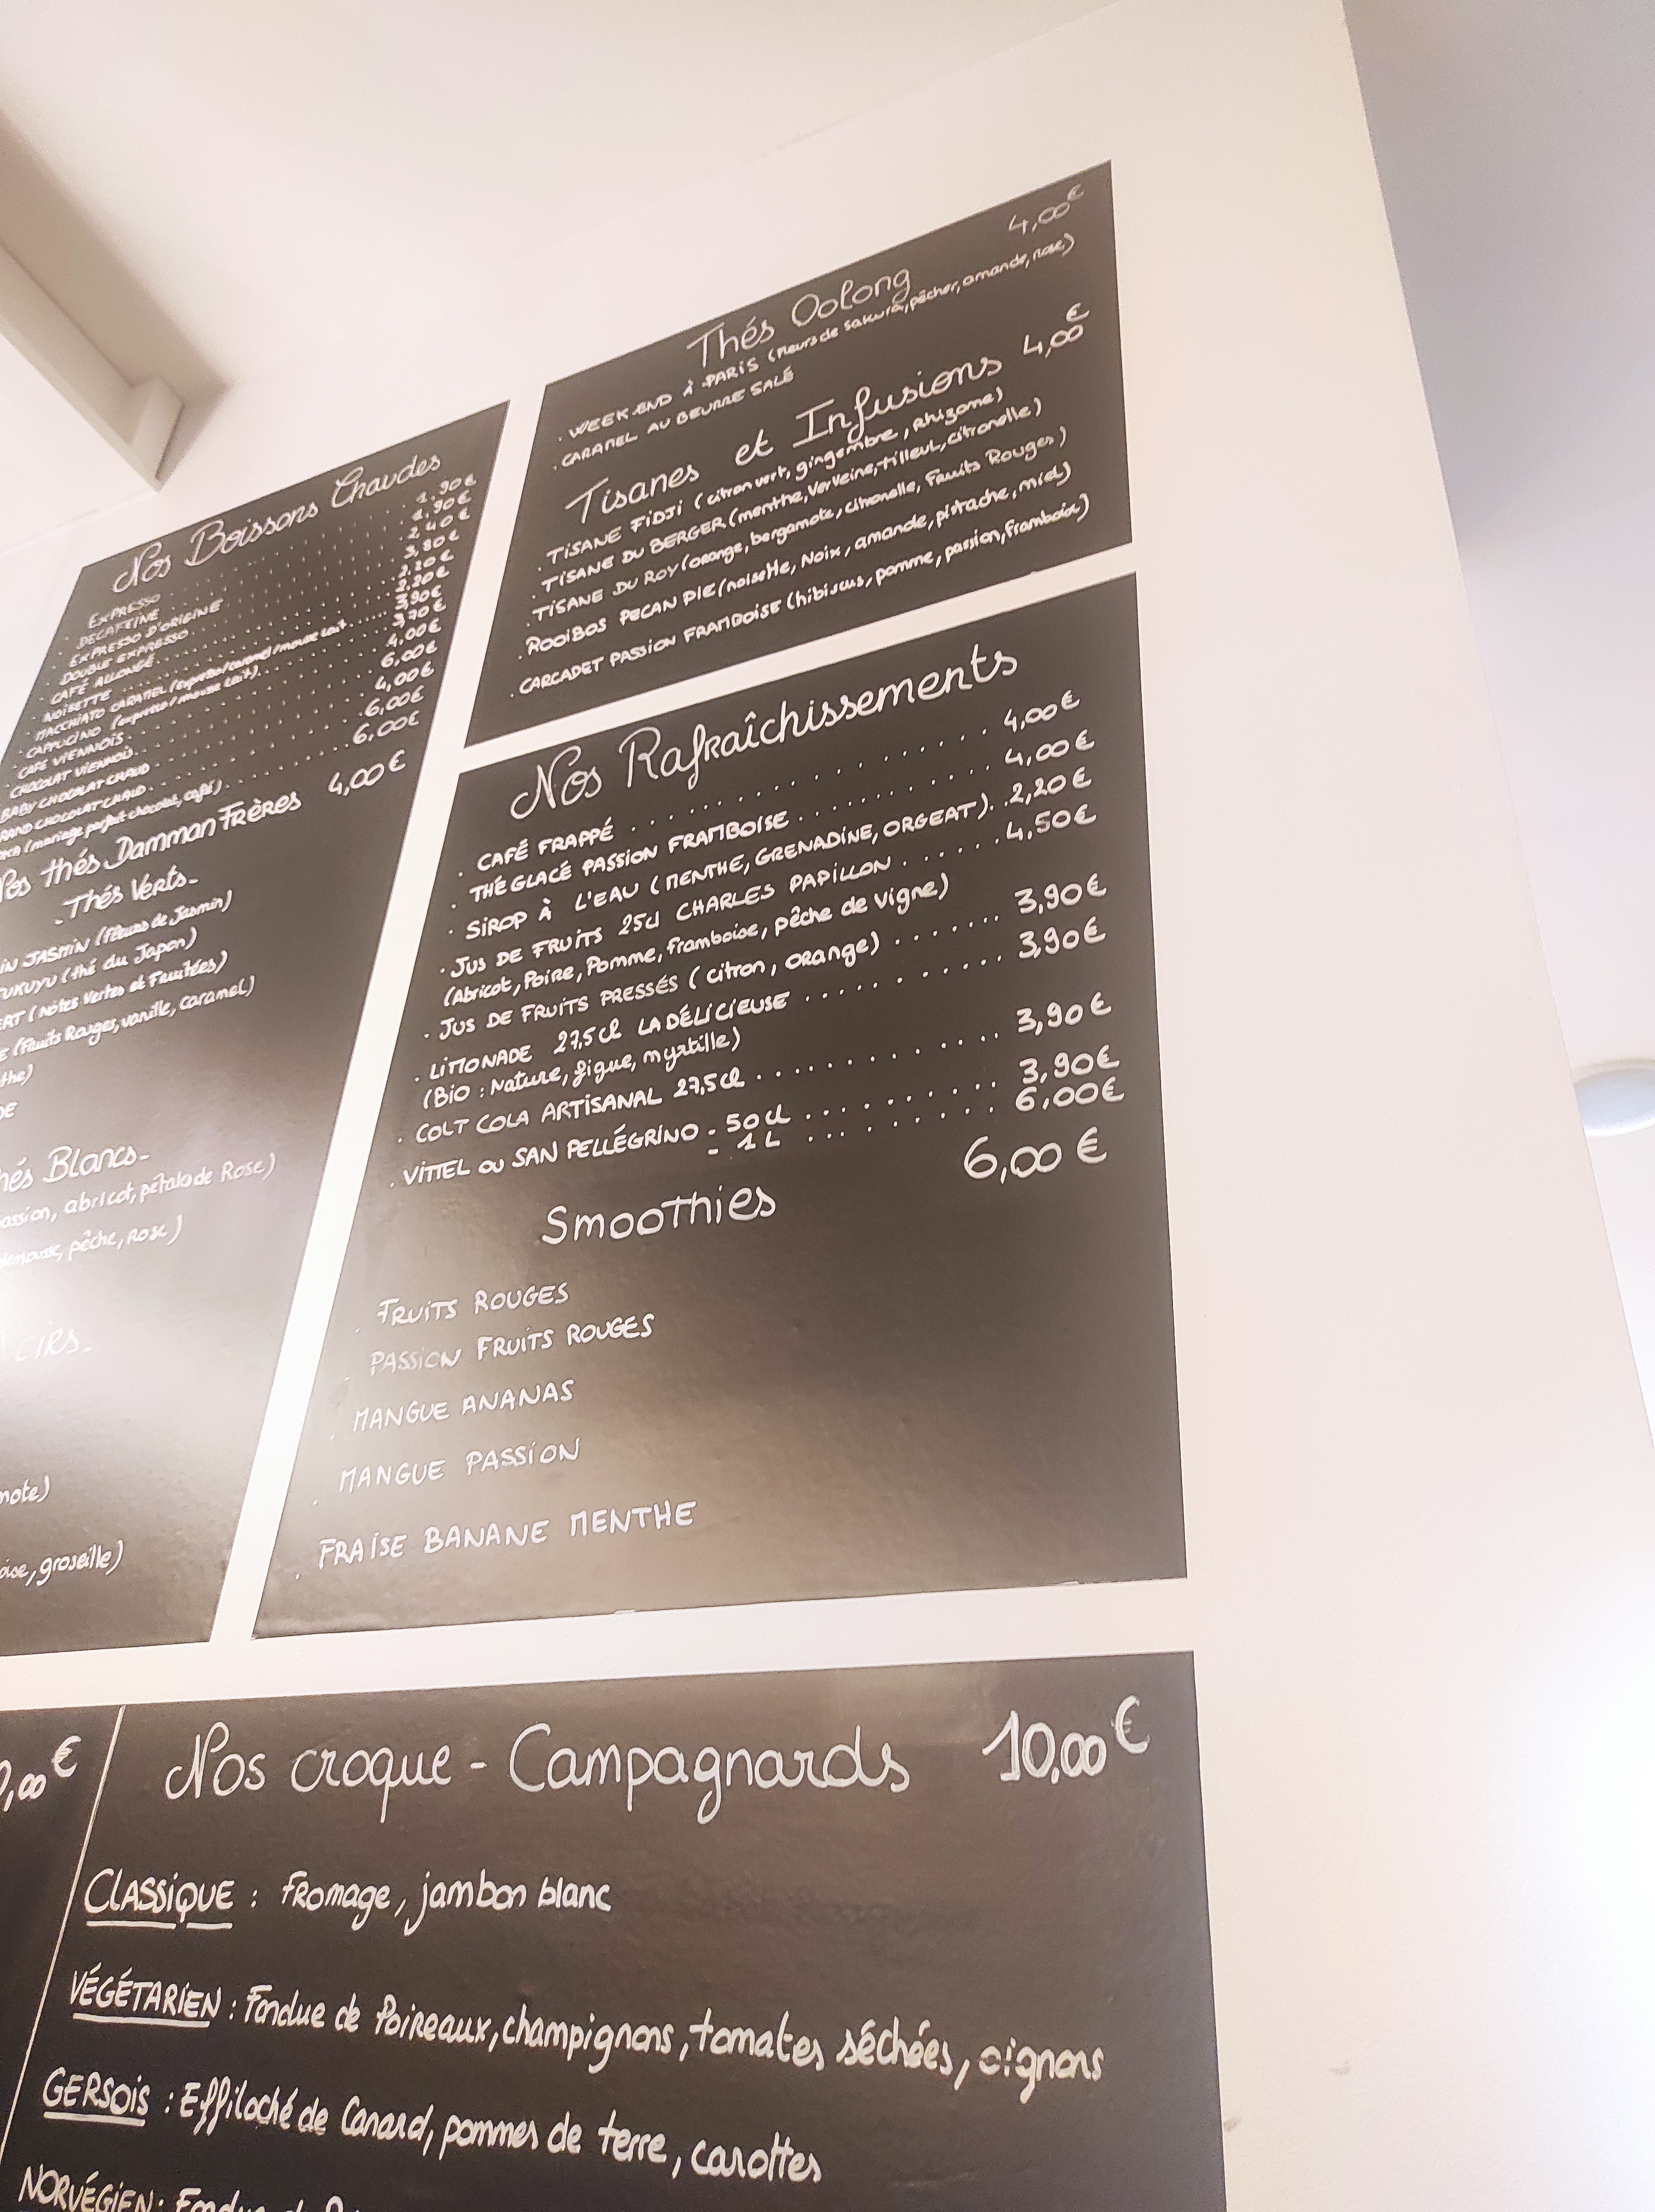 Nos Boissons Chaudes
. EXPRESSO 1.90€
. DECAFEINE 1.90€
. EXPRESSO D'ORIGINE 2.40€
. DOUBLE EXPRESSO 3,80€
. CAFÉ ALLONGÉ 2.20€
. NOISETTE 2.20€
. MACCHIATO CARAMEL (expresso/caramel/mousse lait 3.90€
. CAPPUCINO (expresso/mousse lait) 3,70€
. CAFÉ VIENNOIS 4,00€
. CHOCOLAT VIENNOIS 6,00€
BABY CHOCOLAT CHAUD 4,00€
CHOCOLAT CHAUD 6,00€
(mariage parfait chocolat, café) 6,00€
thés Damman FRères 4,00€
- Thés Verts -
JASMIN (Fleurs de Jasmin)
(thé du Japon)
(Nôtes Vertes et Fruitées)
(Fruits Rouges, vanille, caramel)
Blancs -
abricot, pétale de Rose)
pêche, Rose)
groseille)
Thés Oolong 4,00€
. WEEK-END À PARIS (fleurs de sakura, pêcher, amande, rose)
. CARAMEL AU BEURRE SALÉ
Tisanes et Infusions 4,00€
. TISANE FIDJI (citron vert, gingembre, Rhizome)
. TISANE DU BERGER (menthe, Verveine, tilleul, citronelle)
. TISANE DU ROY (orange, bergamote, citronelle, Fruits Rouges)
. ROOIBOS PECAN PIE (noisette, Noix, amande, pistache, miel)
. CARCADET PASSION FRAMBOISE (hibiscus, pomme, passion, framboise)
Nos Rafraîchissements
. CAFÉ FRAPPÉ . . . . . . . . . . . . 4,00€
. THÉ GLACÉ PASSION FRAMBOISE . . . . . . . . . 4,00€
. SIROP À L'EAU (MENTHE, GRENADINE, ORGEAT). . 2,20€
. JUS DE FRUITS 25cl CHARLES PAPILLON . . . . . . 4,50€
(Abricot, Poire, Pomme, framboise, pêche de vigne)
. JUS DE FRUITS PRESSÉS (citron, orange) . . . . . . . 3,90€
. LIMONADE 27,5cl LA DÉLICIEUSE . . . . . . . . . . . 3,90€
(Bio : Nature, figue, myrtille)
. COLT COLA ARTISANAL 27,5cl . . . . . . . . . . . . . 3,90€
. VITTEL ou SAN PELLÉGRINO - 50cl . . . . . . . . . . 3,90€
- 1 L . . . . . . . . . . 6,00€
Smoothies 6,00€
. FRUITS ROUGES
. PASSION FRUITS ROUGES
. MANGUE ANANAS
. MANGUE PASSION
. FRAISE BANANE MENTHE
Nos croque - Campagnards 10,00€
CLASSIQUE : fromage, jambon blanc
VÉGÉTARIEN : Fondue de Poireaux, champignons, tomates séchées, oignons
GERSOIS : Effiloché de Canard, pommes de terre, carottes
NORVÉGIEN :